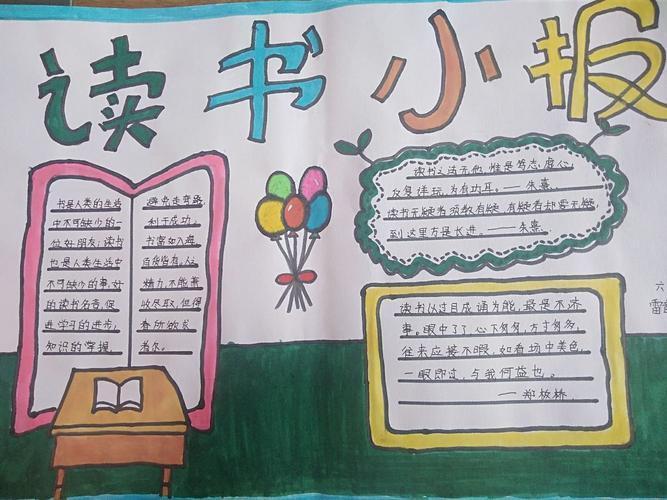 读书小报
书是人类的生活
中不可缺少的一
位好朋友,读书
也是人类生活中
不可缺少的事,好
的读书名言,促
进学习的进步,
知识的掌握,
避免走弯路
利于成功。
书富如入海
百货皆有。人之
精力,不能兼
收尽取,但得
春所欲求
者尔。
读书之法无他,惟是笃志,虚心,
反复详玩,为有功耳。——朱熹。
读书无疑者须教有疑,有疑者却要无疑,
到这里方是长进。——朱熹。
读书以过目成诵为能,最是不济
事。眼中了了,心下匆匆,方寸匆多,
往来应接不暇,如看场中美色,
一眼即过,与我何益也。
——郑板桥。
六
雷